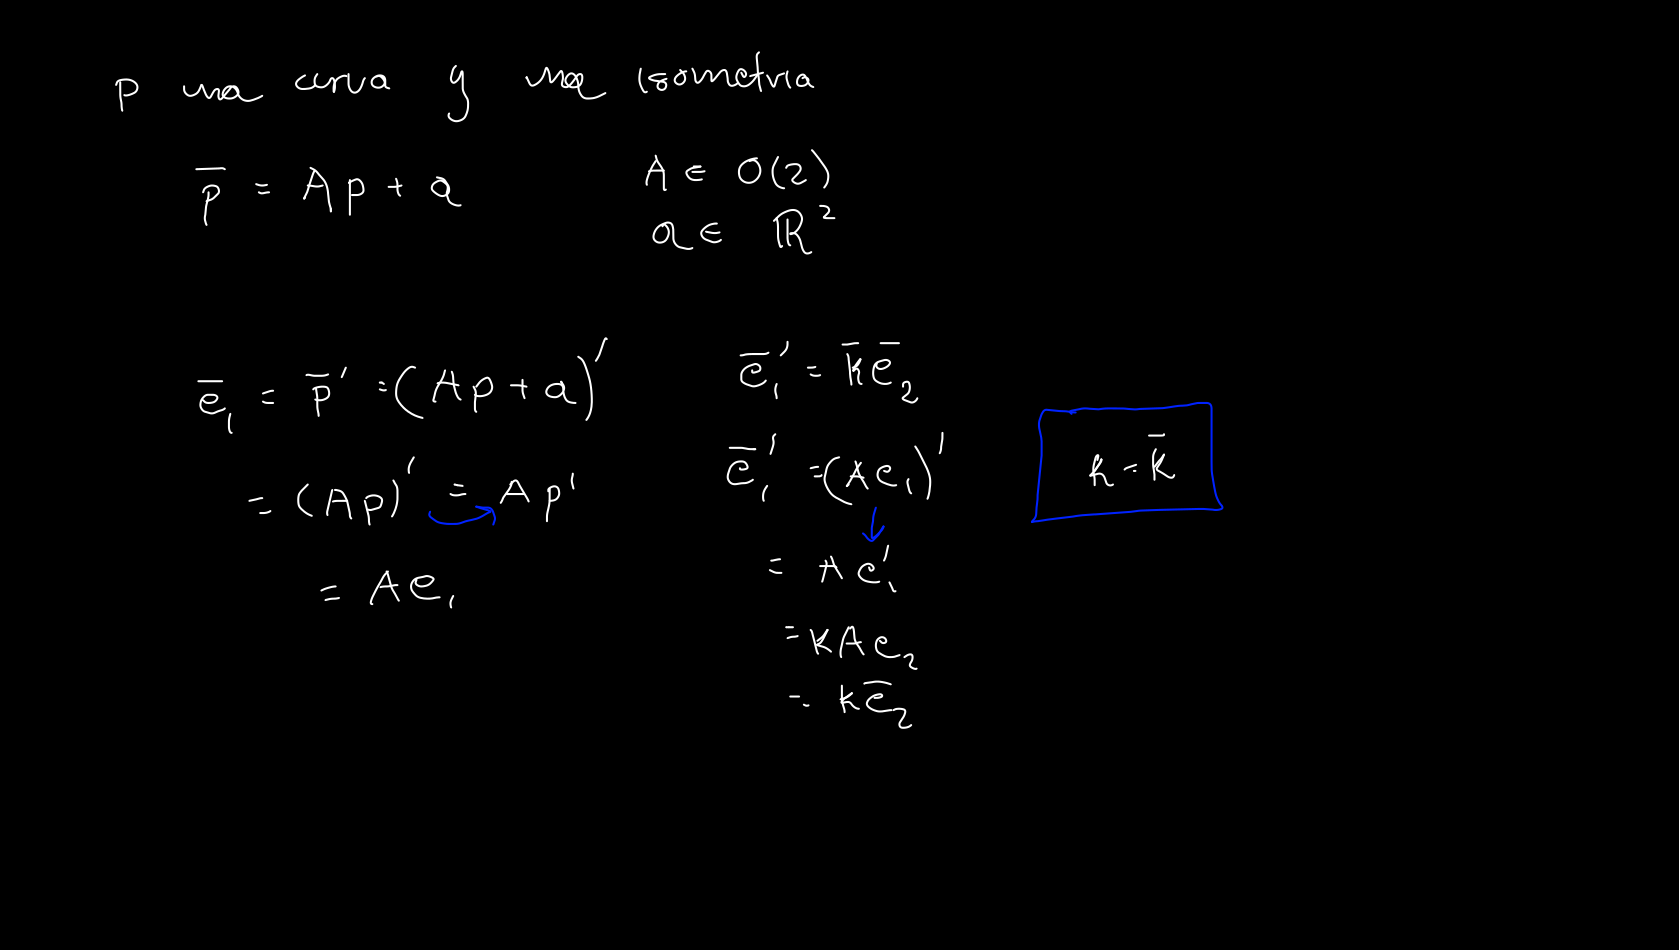 P una curva y una isometria
p̅ = Ap + a
A ∈ O(2)
a ∈ ℝ²
e̅₁ = p̅' = (Ap + a)'
= (Ap)' = Ap'
= Ae₁
e̅₁' = k̅e̅₂
e̅₁' = (Ae₁)'
= Ae₁'
= kAe₂
= ke̅₂
k = k̅